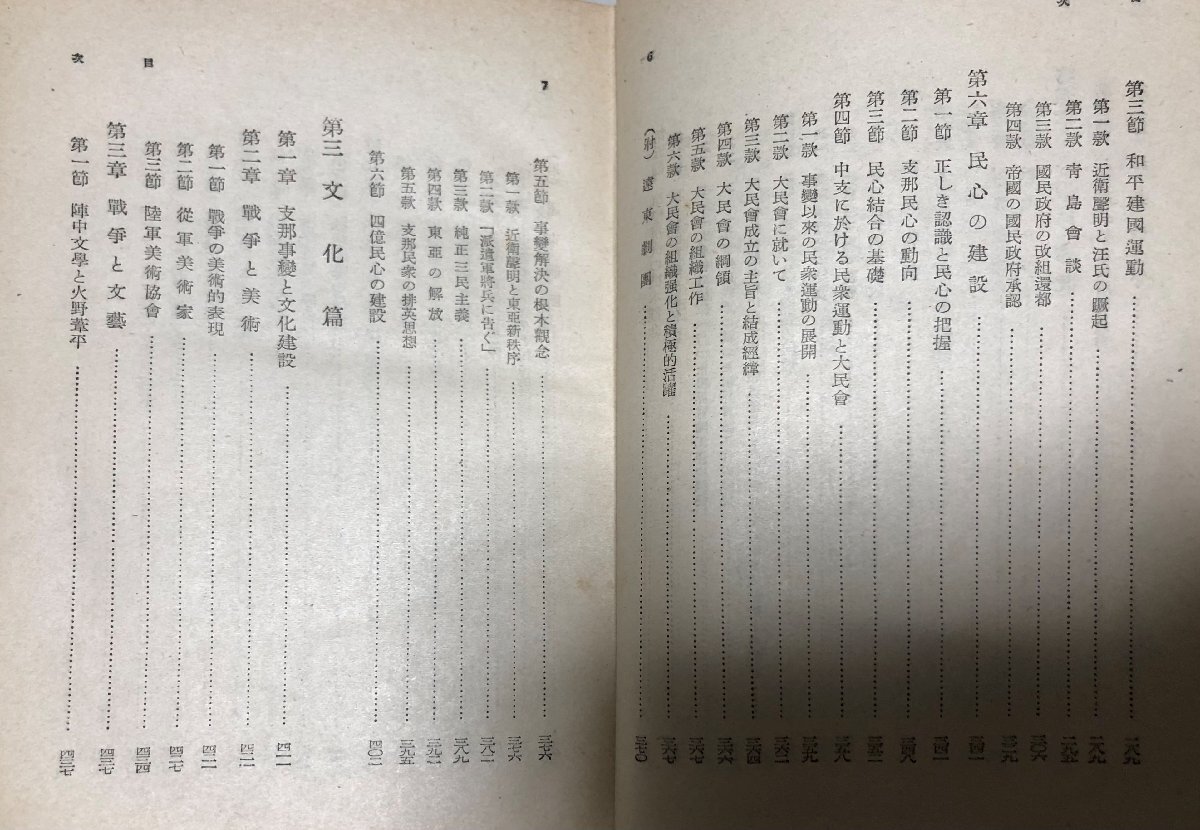 目次
6
第三節　和平建國運動……二八九
第一款　近衞聲明と汪氏の蹶起……二八九
第二款　青島會談……二九五
第三款　國民政府の改組還都……三〇六
第四款　帝國の國民政府承認……三二九
第六章　民心の建設……三四一
第一節　正しき認識と民心の把握……三四一
第二節　支那民心の動向……三四八
第三節　民心結合の基礎……三五二
第四節　中支に於ける民衆運動と大民會……三五八
第一款　事變以來の民衆運動の展開……三五九
第二款　大民會に就いて……三六二
第三款　大民會成立の主旨と結成經緯……三六四
第四款　大民會の綱領……三六六
第五款　大民會の組織工作……三六七
第六款　大民會の組織强化と積極的活躍……三六七
（附）遠東劇團……三七〇
目次
7
第五節　事變解決の根本觀念……三七六
第一款　近衞聲明と東亞新秩序……三七六
第二款　「派遣軍將兵に吿ぐ」……三八二
第三款　純正三民主義……三八九
第四款　東亞の解放……三九二
第五款　支那民衆の排英思想……三九五
第六節　四億民心の建設……四〇二
第三　文化篇
第一章　支那事變と文化建設……四一一
第二章　戰爭と美術……四二二
第一節　戰爭の美術的表現……四二二
第二節　從軍美術家……四二七
第三節　陸軍美術協會……四三四
第三章　戰爭と文藝……四三七
第一節　陣中文學と火野葦平……四三七